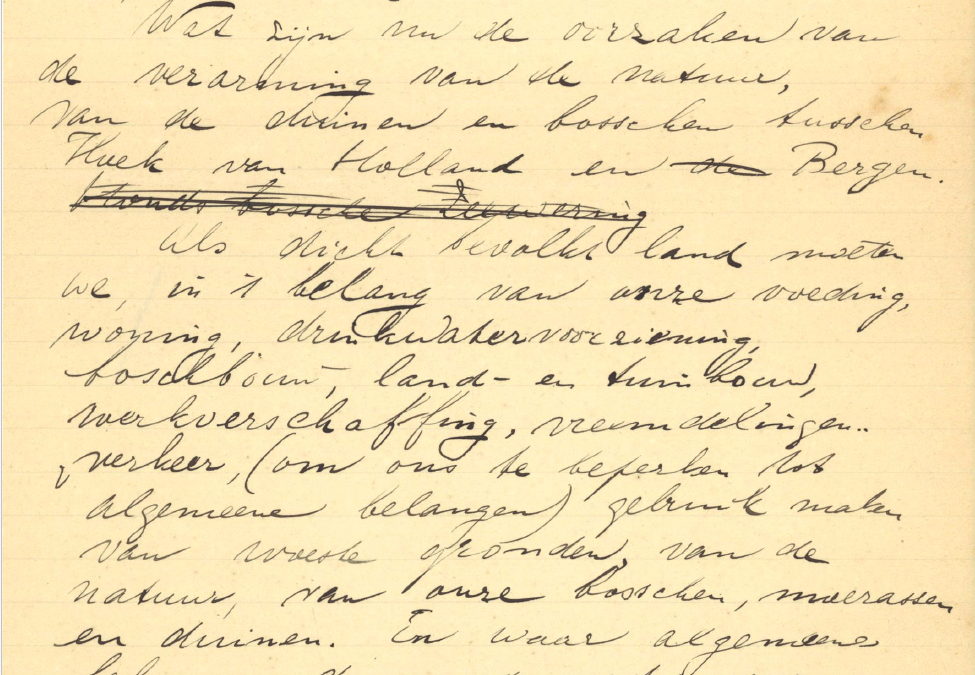 Wat zijn nu de oorzaken van
de verarming van de natuur,
van de duinen en bosschen tusschen
Hoek van Holland en de Bergen.
Honds bossche Zeewering
Als dicht bevolkt land moeten
we, in 't belang van onze voeding,
woning, drinkwatervoorziening,
boschbouw, land- en tuinbouw,
werkverschaffing, vreemdelingen-
verkeer, (om ons te beperken tot
algemeene belangen) gebruik maken
van woeste gronden, van de
natuur, van onze bosschen, moerassen
en duinen. En waar algemeene